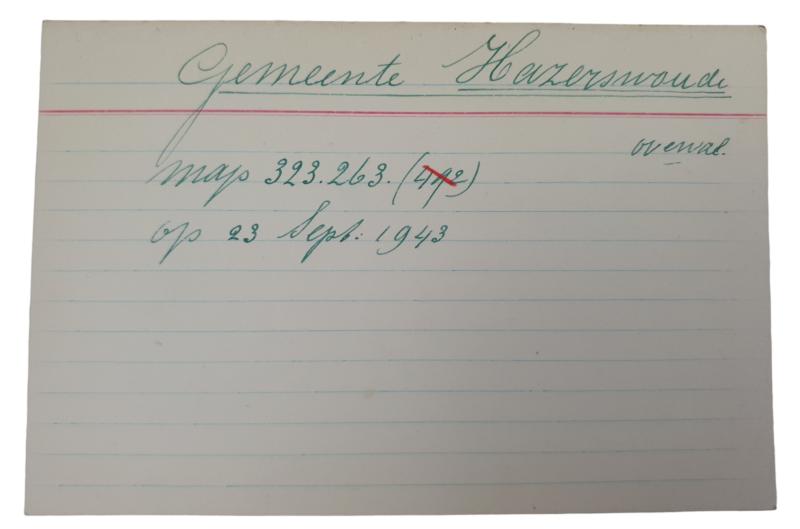 Gemeente Hazerswoude
overval.
map 323.263. ( )
op 23 Sept: 1943